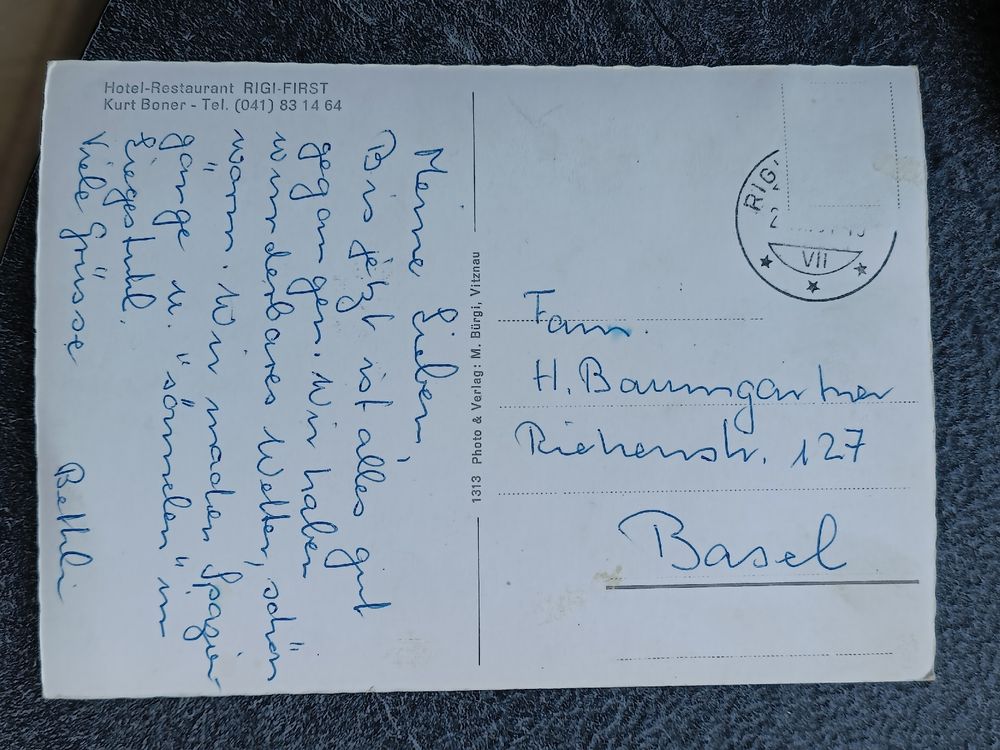 Hotel-Restaurant RIGI-FIRST
Kurt Boner - Tel. (041) 83 14 64
Meine Lieben,
Bis jetzt ist alles gut
gegangen. Wir haben
wunderbares Wetter, schön
warm. Wir machen Spazier-
gänge u. "sönnelen" im
Liegestuhl.
Viele Grüsse
Bethli
1313 Photo & Verlag: M. Bürgi, Vitznau
RIGI
VII
Fam.
H. Baumgartner
Riehenstr. 127
Basel